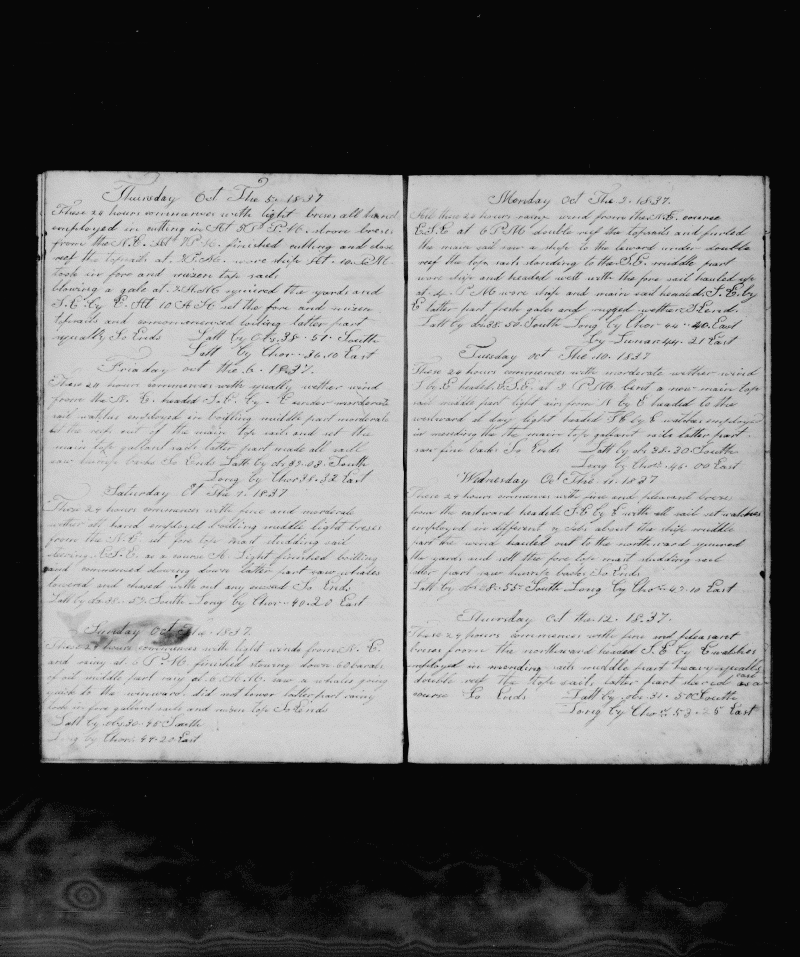 Thursday Oct The 5. 1837
These 24 hours commences with light breses all hand
employed in cutting in At P.M. strong breses
from the N.E. At P.M. finished cutting and close
reef the topsails at P.M. wore ship At 10 P.M.
took in fore and mizen top sails
blowing a gale at A.M. squared the yards and
S.E. by E. At 10 A M set the fore and mizen
topsails and commenced boiling latter part
squally So Ends Latt by obs 38.51 South
Latt by Chor. 36.10 East
Friaday oct the 6. 1837.
These 24 hours commences with squally wether wind
from the N.E. headed S.E. by E under moderate
sail watches employed in boilling middle part moderate
the reefs out of the main top sails and set the
main top gallant sails latter part made all sail
saw hump backs So Ends Latt by obs 39.03 South
Long by Chor 38.32 East
Saturday Oct The 7. 1837
These 24 hours commences with fine and moderate
wether all hand employed boilling middle light breses
from the N.E. set fore top mast studding sail
stearing E.S.E. as a course A. Light finished boilling
and commenced stowing down latter part saw whales
lowered and chased with out any sucsess So Ends
Latt by obs 38.57 South Long by Chor. 40.20 East
Sunday Oct 1837
These 24 hours commences with light winds from N.E.
and rainy at 6 P.M. finished stowing down 60 barels
of oil middle part rainy at 6 A.M. saw a whales going
quick to the winward did not lower latter part rainy
took in fore gallant sails and mizen top So Ends
Latt by obs 38.45 South
Long by Chor. 44.20 East
Monday Oct The 9. 1837.
All these 24 hours rainy wind from the N.E. course
E.S.E at 6 P M double reef the topsails and furled
the main sail saw a ship to the leward under double
reef the top sails standing to the S.E. middle part
wore ship and headed west with the fore sail hauled up
at 4 P M wore ship and main sail headed S.E. by
E latter part fresh gales and rugged wether So Ends
Latt by obs 38.50 South Long by Chor 44.40 East
by Lunar 44.21 East
Tuesday oct The 10. 1837
These 24 hours commences with morderate wether wind
N by E headed E.S.E. at 3 P M bent a new main top
sail middle part light airs from N by E headed to the
westward at day light headed S E by E watches employe
in mending the the main top galant sails latter part
saw fine backs So Ends Latt by obs 38.30 South
Long by Chor. 46.00 East
Wednesday Oct The 11. 1837
These 24 hours commences with fine and pleasant breze
from the eastward headed S.E by E with all sail set watches
employed in different Jobs about the ship middle
part the wind hauled out to the northward squared
the yards and sett the fore top mast studding sail
latter part saw backs So Ends
Latt by obs 38.55 South Long by Chor 47.10 East
Thursday Oct the 12. 1837.
These 24 hours commences with fine and pleasant
breses from the northward headed S.E by E watches
employed in mending sails middle part heavy squalls
double reef the top sails latter part stared east as a
course So Ends Latt by obs 38.50 South
Long by Chor. 53.25 East